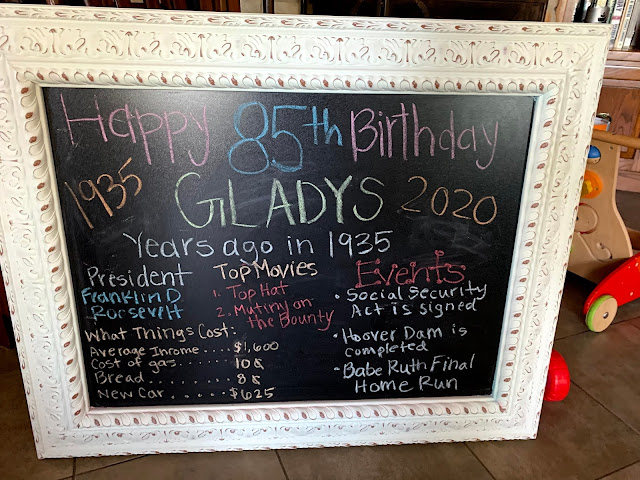 Happy 85th Birthday
1935 GLADYS 2020
Years ago in 1935
President
Franklin D
Rorsevelt
Top Movies
1. Top Hat
2. Mutiny on
the Bounty
What Things Cost:
Average Income.... $1,600
Cost of gas....... 10¢
Bread........ 8¢
New Car...... $625
Events
• Social Security
Act is signed
• Hoover Dam is
completed
• Babe Ruth Final
Home Run